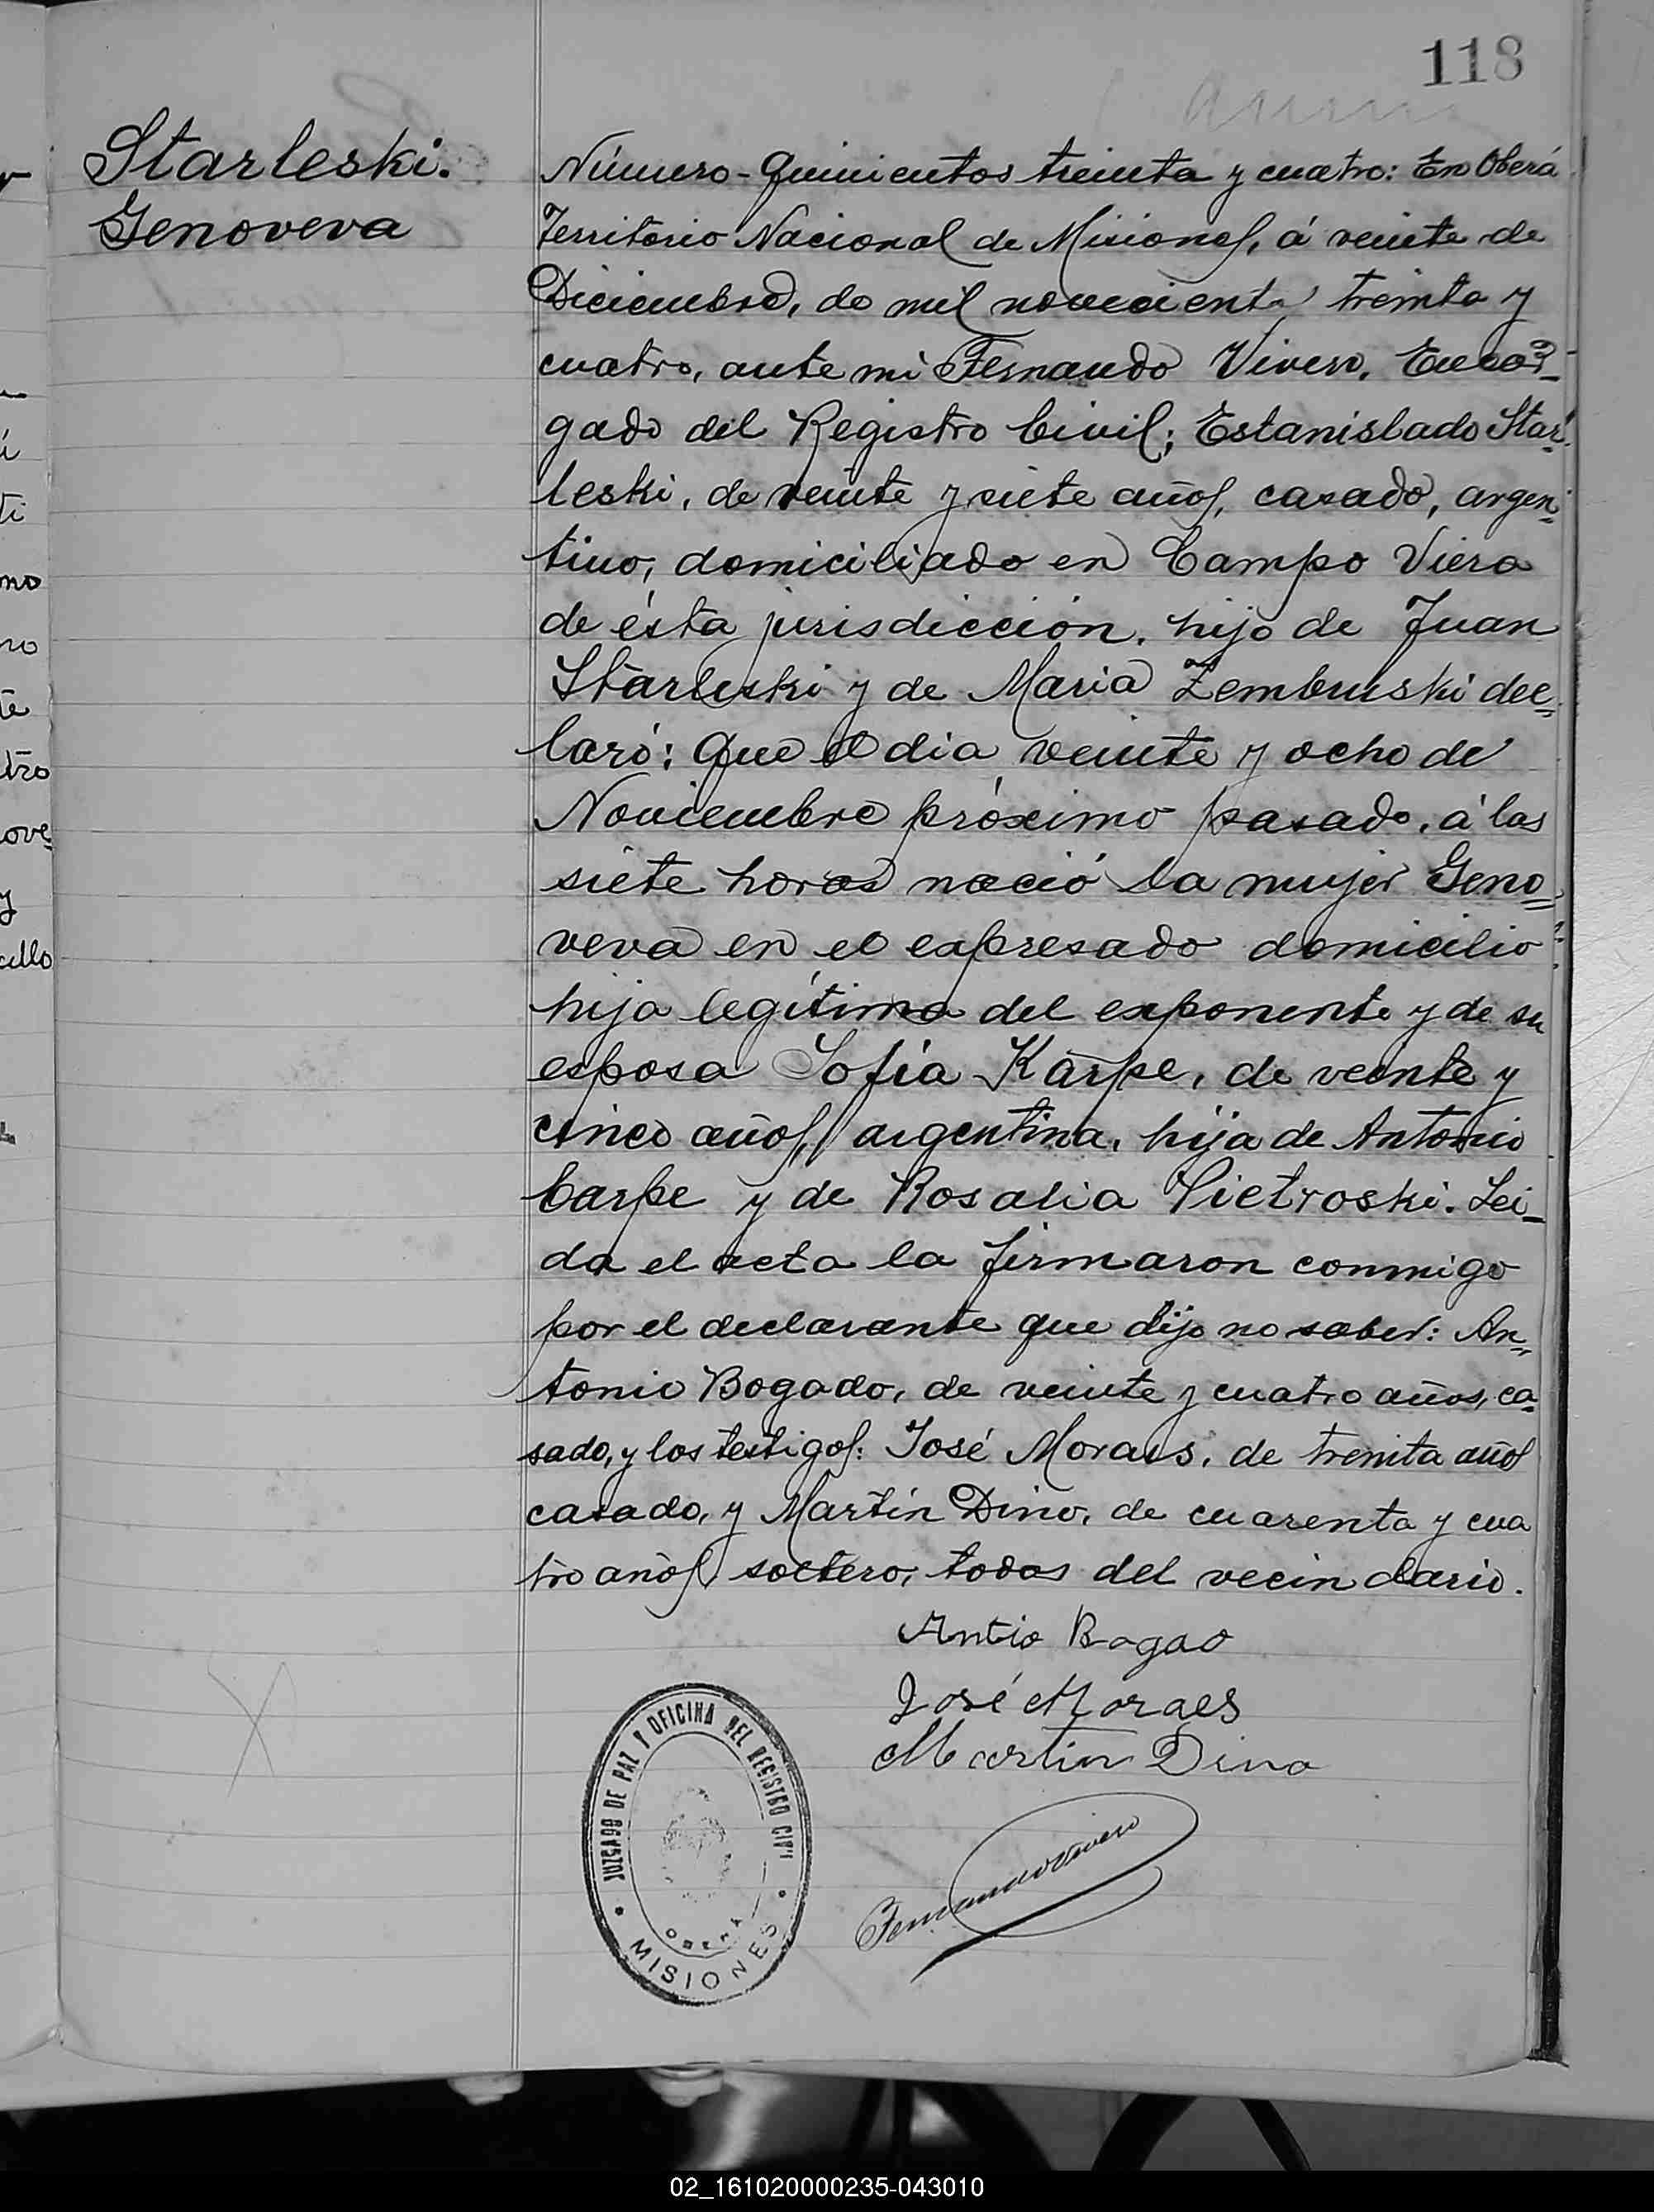 118
Starleski.
Genoveva
Número - Quinientos treinta y cuatro: En Oberá
Territorio Nacional de Misiones, á veinte de
Diciembre, de mil novecientos treinta y
cuatro, ante mi Fernando Vivero, Encar-
gado del Registro Civil; Estanislado Star-
leski, de veinte y siete años, casado, argen-
tino, domiciliado en Campo Viera
de ésta jurisdicción, hijo de Juan
Starleski y de Maria Zembruski dec-
laró: Que el dia veinte y ocho de
Noviembre próximo pasado, á las
siete horas nació la mujer Geno=
veva en el expresado domicilio
hija legítima del exponente y de su
esposa Sofía Karpe, de veinte y
cinco años, argentina, hija de Antonio
Carpe y de Rosalia Pietroski. Lei-
da el acta la firmaron conmigo
por el declarante que dijo no saber: An-
tonio Bogado, de veinte y cuatro años, ca-
sado, y los testigos: José Moraes, de treinta años
casado, y Martín Dino, de cuarenta y cua
tro años, soltero, todos del vecindario.
Antio Bogao
José Moraes
Martin Dino
Fernando Vivero
JUZGADO DE PAZ Y OFICINA DEL REGISTRO CIVIL
OBERA
MISIONES
ti
mo
ro
te
tro
ove
y
cillo
02_161020000235-043010